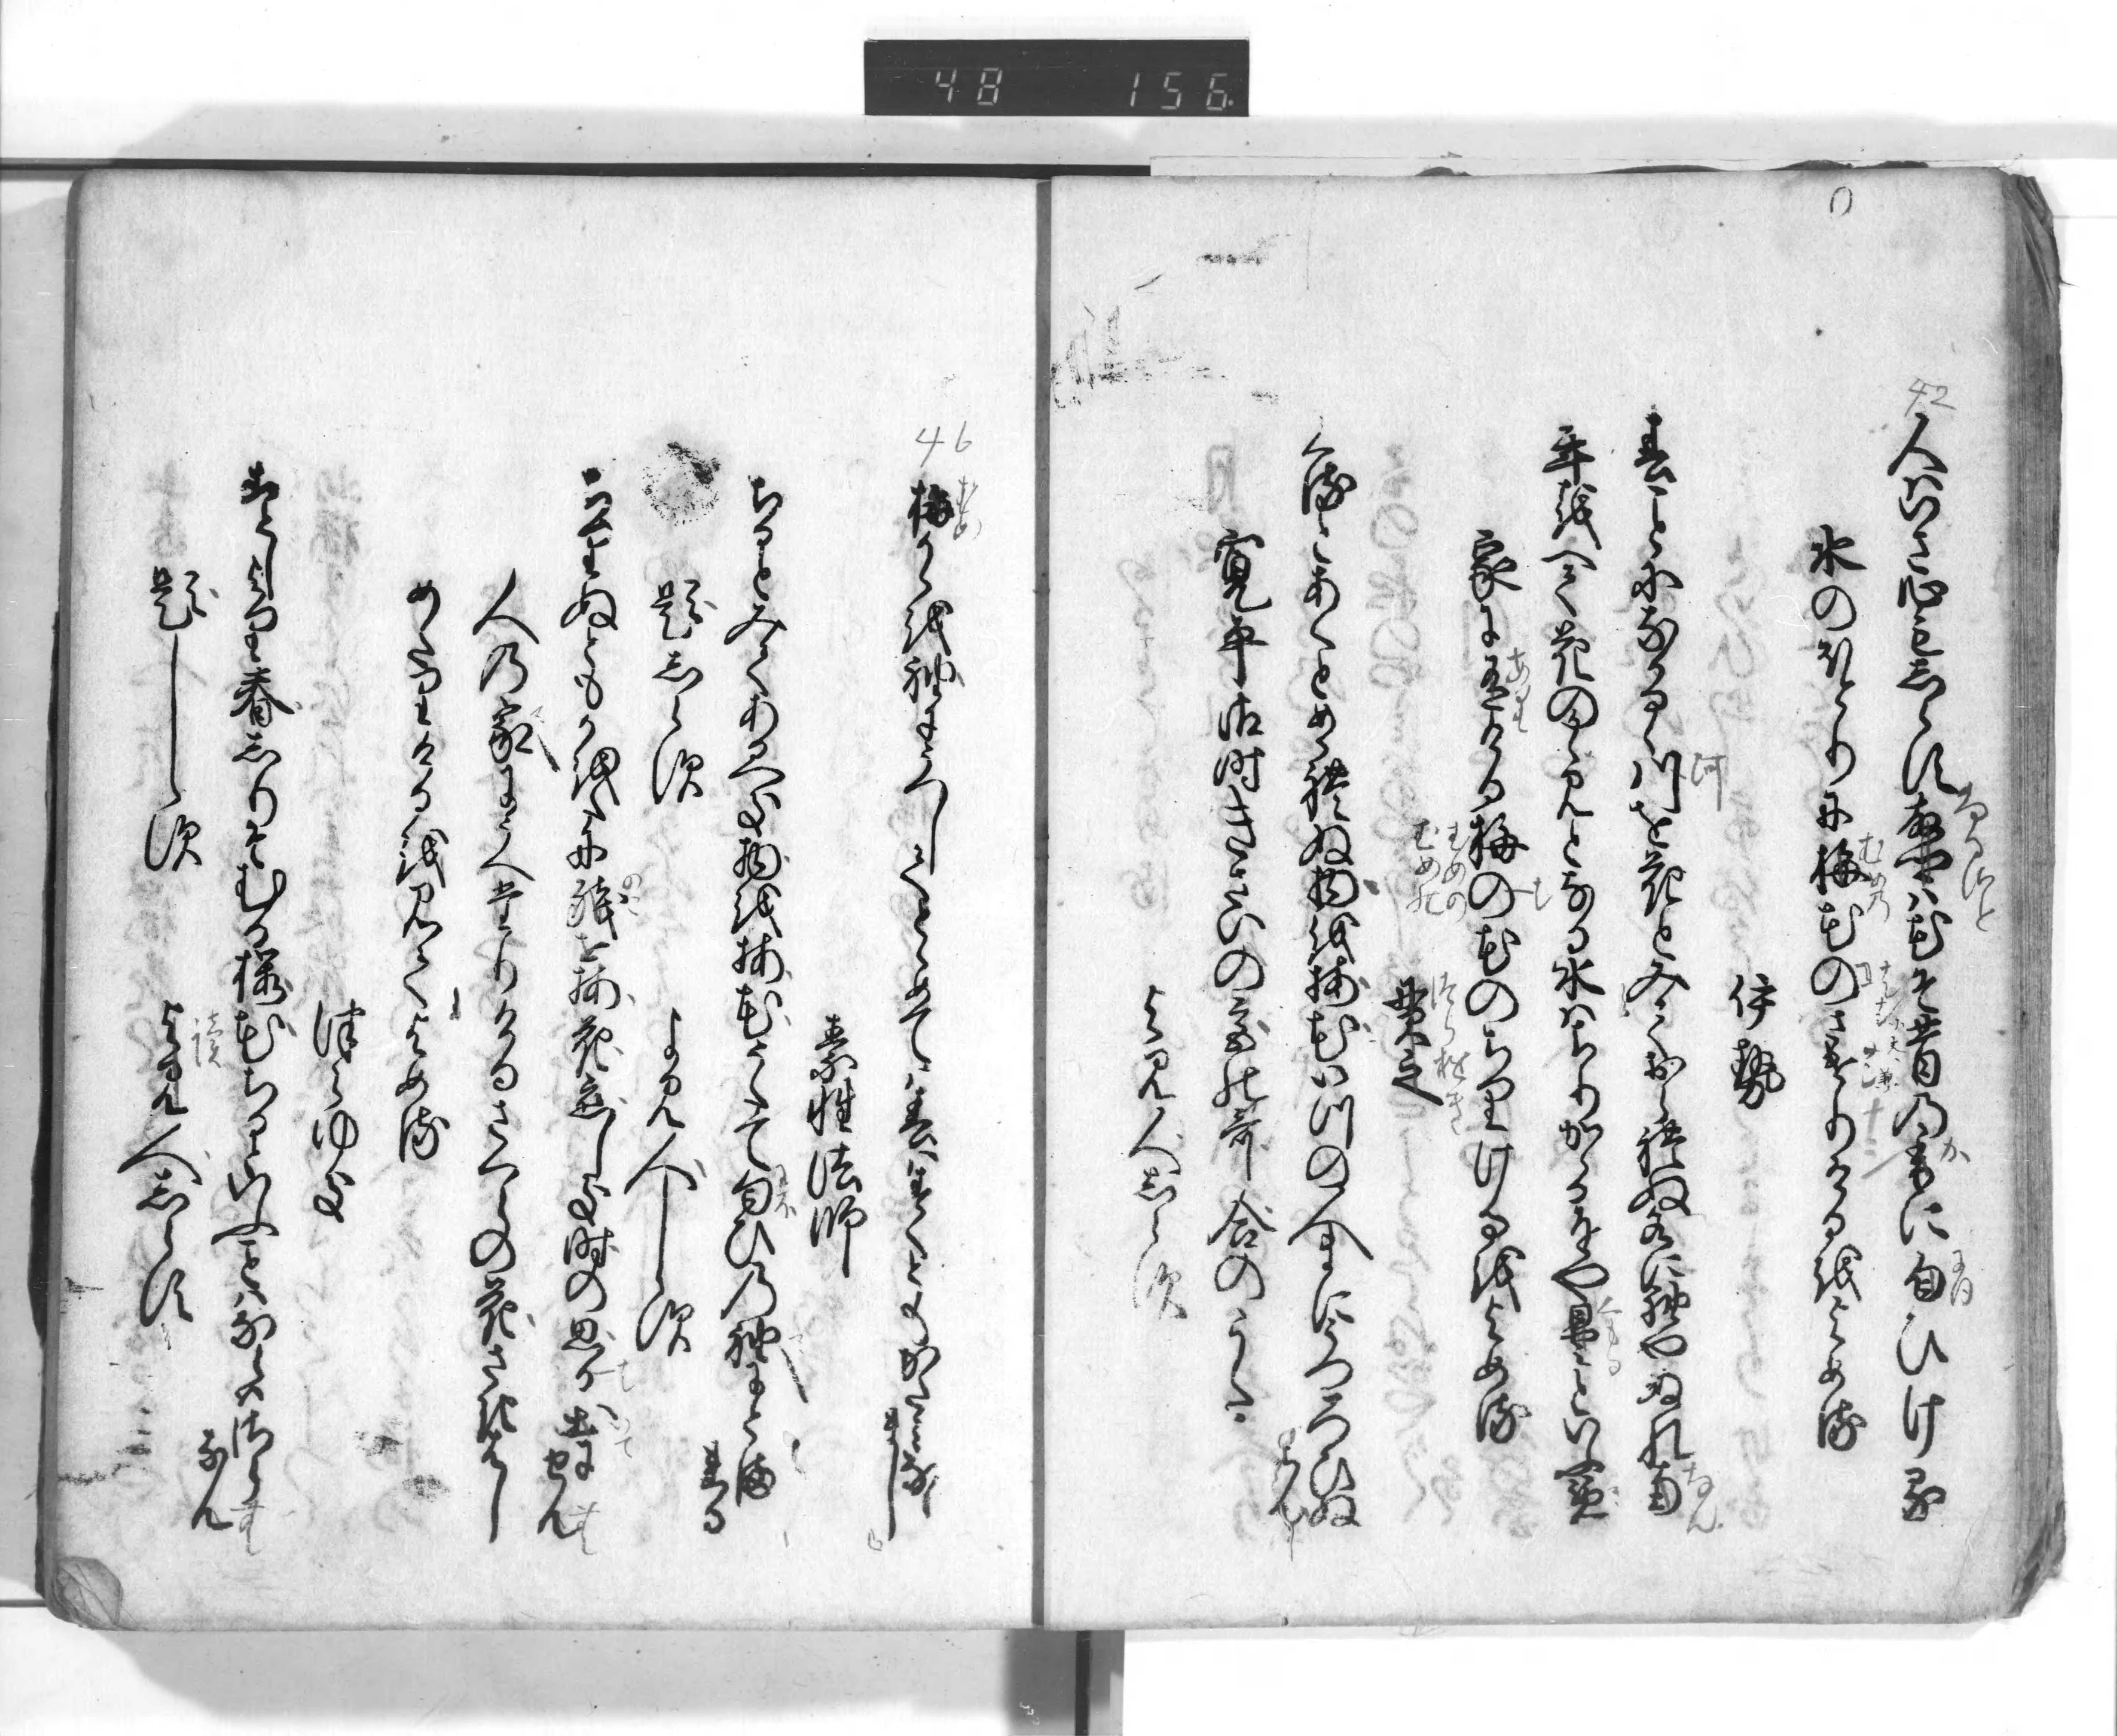 48 156
42
人はいさ心もしらす故郷は花そ昔乃香に匂ひける
水のほとりに梅花のさけりける越よめる
伊勢
春ことになかるゝ川を花とみておられぬ水に袖やぬれ南
年越へて花のかゝ見となる水はちりかゝるをや曇るといふ覧
家にありける梅の花のちりける越よめる
貫之
くるとあくとめかれぬ物越梅花いつの人まにうつろひぬ
らん
寛平御時きさいの宮能哥合のうた
よみ人しらす
46
梅か香越袖にうつしてとゝめては春はすくともかたみなら
まし
素性法師
ちるとみてあるへき物越梅花うたて匂ひ乃袖にとま
れる
題しらす
よみ人しらす
ちりぬともか越たに残せ梅花恋しき時の思ひ出に
せん
人乃家にうへたりけるさくらの花さきはし
めたりける越見てよめる
つらゆき
ことしより春しりそむる桜花ちるといふことはならはさら
なん
題しらす
よみ人しらす